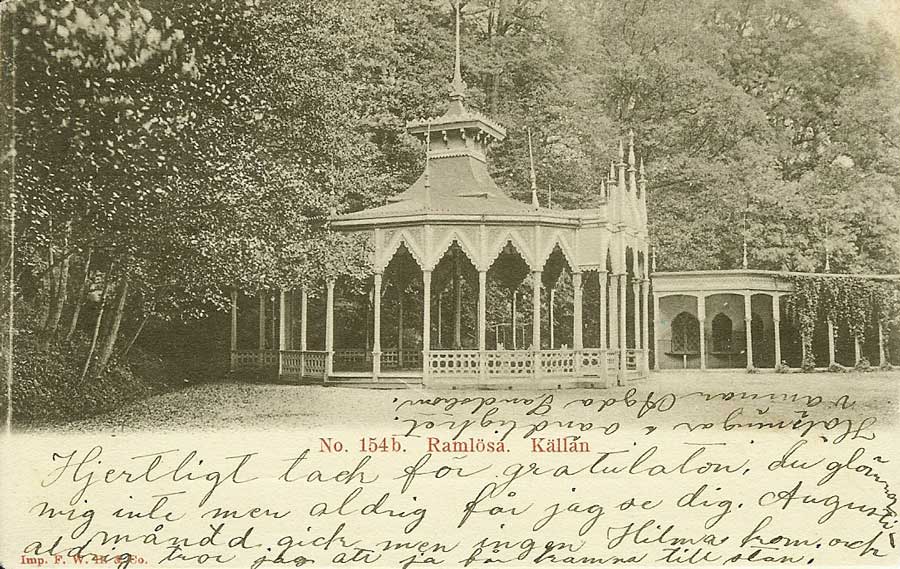 No. 154b. Ramlösa. Källan
Hjertligt tack för gratulaton, du glömmer
mig inte men aldrig får jag se dig. Augusti
månad gick men ingen Hilma kom. och
aldrig tror jag att ja får komma till stan.
Hälsningar & 
vännan Agda
Imp. F. W. & Co.